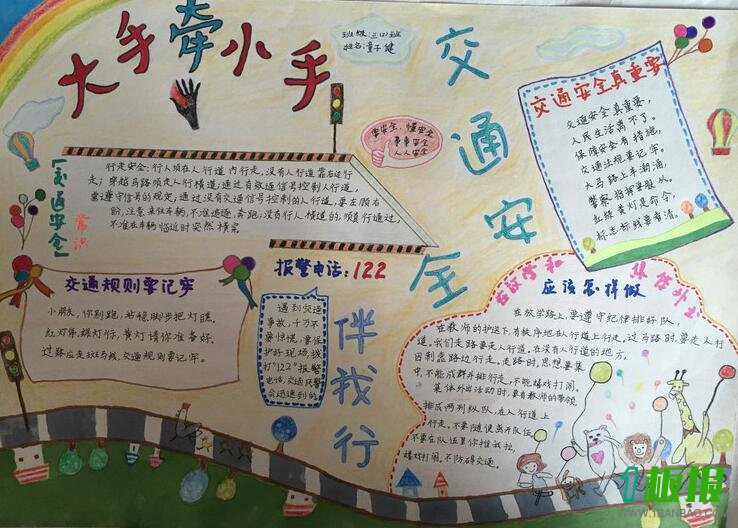 大手牵小手
班级:三(2)班
姓名:童子健
交通安全
伴我行
要安全，懂安全
事事安全
人人安全
【交通安全】
常识
行走安全:行人须在人行道内行走,没有人行道靠右边行
走;穿越马路须走人行横道;通过有交通信号控制人行道,
需遵守信号的规定;通过没有交通信号控制的人行道,要左顾右
盼,注意来往车辆,不准追逐、奔跑;没有行人横道的,须直行通过,
不准在车辆临近时突然横穿
交通安全真重要
交通安全真重要,
人民生活离不了。
保障安全有措施,
交通法规要记牢。
大马路上车潮涌,
警察指挥要服从。
红绿黄灯是命令,
标志标线要看清。
交通规则要记牢
小朋友,你别跑,站稳脚步把灯瞧
红灯停,绿灯行,黄灯请你准备好.
过路应走斑马线,交通规则要记牢.
报警电话:122
遇到交通
事故,千万不
要惊慌,要保
护好现场,拨
打“122”报警
电话,交通民警
会迅速到的
在放学和
集体外出
应该怎样做
在放学路上,要遵守纪律排好队,
在教师的护送下,有秩序地在人行道上行走。过马路时,要走人行
道。我们走路要走人行道。在没有人行道的地方,
应到靠路边行走。走路时,思想要集
中,不能成群并排行走,不能嬉戏打闹。
集体外出活动时,要有教师的带领
排成两列纵队,在人行道上
行走,不要随便离开队伍,
不要在队伍里你推我拉,
嬉戏打闹,不防碍交通.
个板报
WWW.1BANBAO.COM